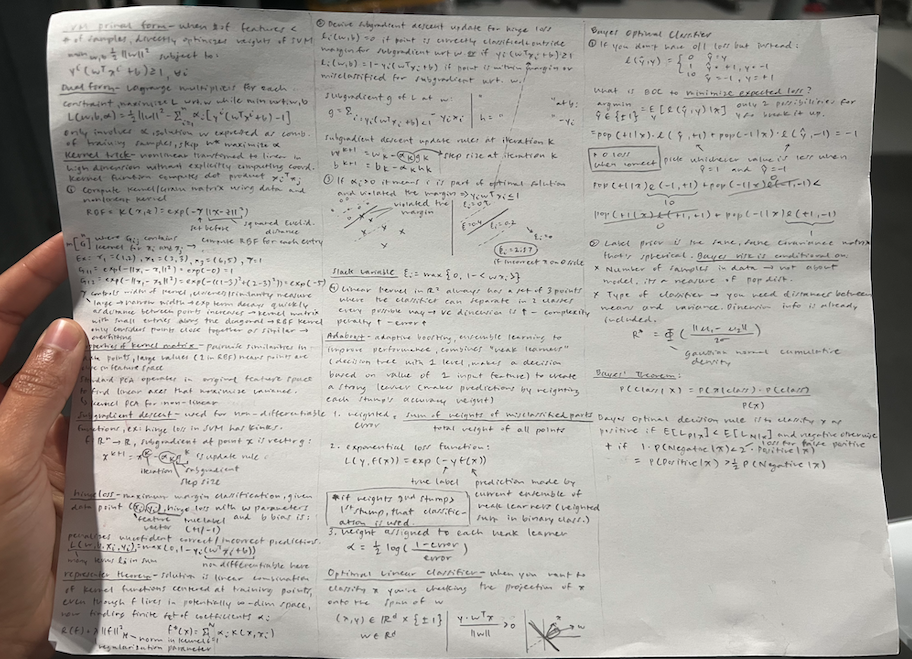 SVM primal form - when # of features <
# of samples, directly optimizes weights of SVM
min w,b ½ ||w||² subject to:
yⁱ(wᵀxⁱ+b)≥1, ∀i
Dual form - Lagrange multipliers for each
constraint, maximize L wrt. α while min wrt w,b
L(w,b,α) = ½||w||² - Σⁿᵢ₌₁ αᵢ[yⁱ(wᵀxⁱ+b)-1]
only involves α, solution w expressed as comb.
of training samples, skip w* maximize α
Kernel trick - nonlinear transformed to linear in
high dimension without explicitly computing coord.
Kernel function computes dot product xᵢᵀxⱼ
① Compute kernel/gram matrix using data and
nonlinear kernel
RBF = K(x,z) = exp(-γ||x-z||²)
set before squared Euclid. distance
[G] where Gij contains
kernel for xi and xj → compute RBF for each entry
Ex = x₁=(1,2), x₂=(3,3), x₃=(6,5), γ=1
G₁₁ = exp(-||x₁-x₁||²) = exp(-0) = 1
G₁₂ = exp(-||x₁-x₂||²) = exp(-((1-3)²+(2-3)²)) = exp(-5)
γ controls width of kernel, similarity measure
large → narrow width → exp term decays quickly
as distance between points increases → kernel matrix
with small entries along the diagonal → RBF kernel
only considers points close together as similar →
overfitting
Properties of kernel matrix - pairwise similarities in
points, large values (1 in RBF) means points are
in feature space
Standard PCA operates in original feature space
to find linear axes that maximize variance.
↳ kernel PCA for non-linear
Subgradient descent - used for non-differentiable
functions, ex: hinge loss in SVM has kinks.
Rⁿ → R, subgradient at point x is vector g:
xᵏ⁺¹ = xᵏ - αₖgᵏ is update rule
iteration subgradient
step size
Hinge loss - maximum margin classification, given
data point (xi, yi), hinge loss with w parameters
feature vector true label (+1/-1) and b bias is:
penalizes confident correct/incorrect predictions.
L(w,b,xi,yi) = max(0, 1-yi(wᵀxi+b))
many terms Li in sum non differentiable here
representer theorem - solution is linear combination
of kernel functions centered at training points,
even though f lives in potentially ∞-dim space,
now finding finite set of coefficients α:
R(f)+λ||f||²H → norm in kernel f*(x)=Σⁿᵢ₌₁ αi K(x,xi)
regularization parameter
② Derive subgradient descent update for hinge loss
Li(w,b)=0 if point is correctly classified outside
margin for subgradient wrt w if yi(wᵀxi+b)≥1
Li(w,b)=1-yi(wᵀxi+b) if point is within margin or
misclassified for subgradient wrt. w.
subgradient g of L at w: at b:
g = Σi:yi(wᵀxi+b)<1 -yixi h = -yi
subgradient descent update rules at iteration k
wᵏ⁺¹ = wk - αkgk → step size at iteration k
bk+1 = bk - αkhk
③ If αi>0 it means i is part of optimal solution
and violated the margin ⇒ yiwᵀxi≤1
violated the
margin
if incorrect on side
Slack variable ξi = max{0, 1-<w xi>}
④ Linear kernel in R² always has a set of 3 points
where the classifier can separate in 2 classes
every possible way → VC dimension is ↑ - complexity
penalty ↑ - error ↑
Adaboost - adaptive boosting, ensemble learning to
improve performance, combines "weak learners"
(decision tree with 1 level, makes a decision
based on value of 1 input feature) to create
a strong learner (makes predictions by weighting
each stump's accuracy weight)
1. weighted error = sum of weights of misclassified parts
total weight of all points
2. exponential loss function:
L(y,f(x)) = exp(-yf(x))
true label prediction made by
current ensemble of
weak learners (weighted
sum in binary class.)
*if weights 2nd stump >
1st stump, that classific-
ation is used
3. weight assigned to each weak learner
α = ½ log(1-error / error)
Optimal linear classifier - when you want to
classify x you're checking the projection of x
onto the span of w
(x,y) ∈ Rᵈ × {±1} y·wᵀx / ||w|| >0
w∈Rᵈ
Bayes Optimal Classifier
① If you don't have 0/1 loss but instead:
ℓ(ŷ,y) = { 0 ŷ=y
1 ŷ=+1, y=-1
10 ŷ=-1, y=+1
What is BOC to minimize expected loss?
argmin ŷ∈{±1} = E[ℓ(ŷ,y)|x] only 2 possibilities for
y so break it up.
=pop(+1|x)·ℓ(ŷ,+1)+pop(-1|x)·ℓ(ŷ,-1)
0 loss
when correct pick whichever value is less when
ŷ=1 and ŷ=-1
pop(+1|x)ℓ(-1,+1)+pop(-1|x)ℓ(-1,-1)<
10 0
pop(+1|x)ℓ(+1,+1)+pop(-1|x)ℓ(+1,-1)
② Label prior is the same, same covariance matrix
that's spherical. Bayes risk is conditional on:
x Number of samples in data → not about
model, its a measure of pop dist.
x Type of classifier → you need distances between
means and variance. Dimension info is already
included.
R* = Φ(||μ₁-μ₂|| / 2σ)
Gaussian normal cumulative
density
Bayes' Theorem:
P(class|x) = P(x|class)·P(class)
P(x)
Bayes Optimal decision rule is to classify x as
positive if E[LP|x]<E[LN|x] and negative otherwise
loss for false positive
+ if 1·P(Negative|x)<2·P(Positive|x)
= P(Positive|x) >½ P(Negative|x)